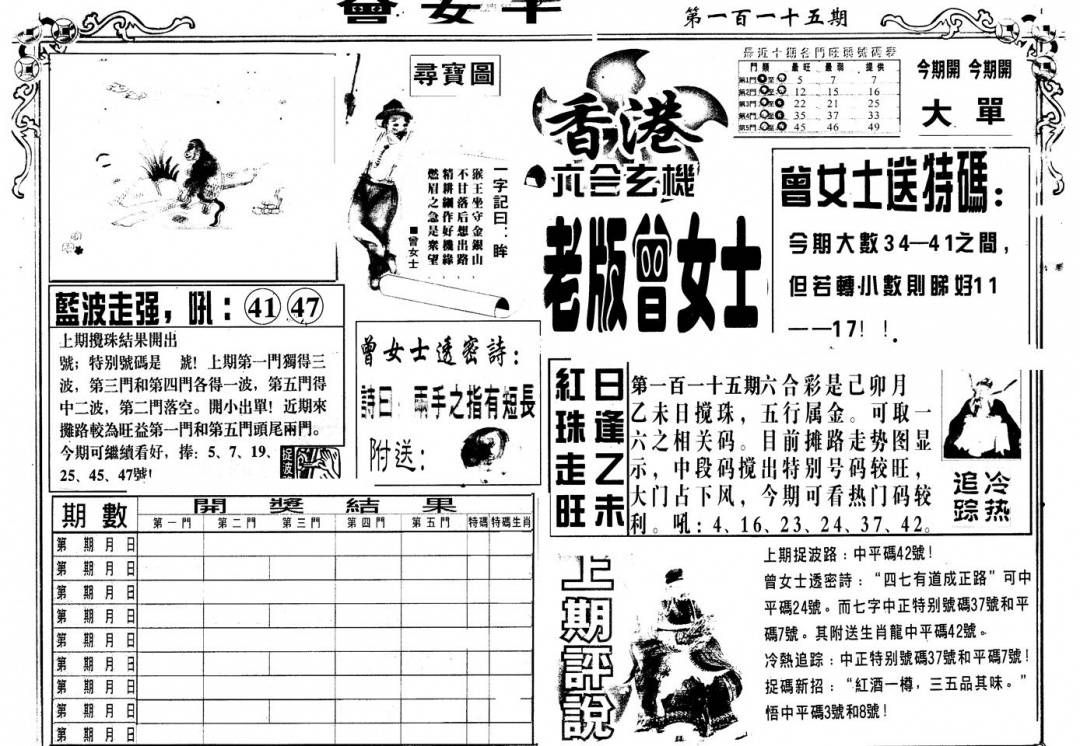 第一百一十五期
尋寶圖
一字記曰：眸
猴王坐守金銀山
不甘落后想出路
精耕細作好機緣
燃眉之急是衆望
■曾女士
香港
六合玄機
老版曾女士
最近十期各門旺弱號碼表
門類 最旺 最弱 提供
第1門 至 5 7 7
第2門 至 12 15 16
第3門 至 22 21 25
第4門 至 35 37 33
第5門 至 45 46 49
今期開 今期開
大 單
曾女士送特碼：
今期大數34—41之間，
但若轉小數則睇好11
——17！！
藍波走强，吼：41 47
上期攪珠結果開出
號；特别號碼是 號！上期第一門獨得三
波，第三門和第四門各得一波，第五門得
中二波，第二門落空。開小出單！近期來
攤路較為旺益第一門和第五門頭尾兩門。
今期可繼續看好，捧：5、7、19、
25、45、47號！
捉波
曾女士透密詩：
詩曰：兩手之指有短長
附送：
日逢乙未
紅珠走旺
第一百一十五期六合彩是己卯月
乙未日搅珠，五行属金。可取一
六之相关码。目前摊路走势图显
示，中段码搅出特别号码较旺，
大门占下风，今期可看热门码较
利。吼：4、16、23、24、37、42。
冷热
追踪
期數 開獎結果
第一門 第二門 第三門 第四門 第五門 特碼 特碼生肖
第 期 月 日
第 期 月 日
第 期 月 日
第 期 月 日
第 期 月 日
第 期 月 日
第 期 月 日
第 期 月 日
第 期 月 日
上期評說
上期捉波路：中平碼42號！
曾女士透密詩：“四七有道成正路”可中
平碼24號。而七字中正特别號碼37號和平
碼7號。其附送生肖龍中平碼42號。
冷熱追踪：中正特别號碼37號和平碼7號！
捉碼新招：“紅酒一樽，三五品其味。”
悟中平碼3號和8號！